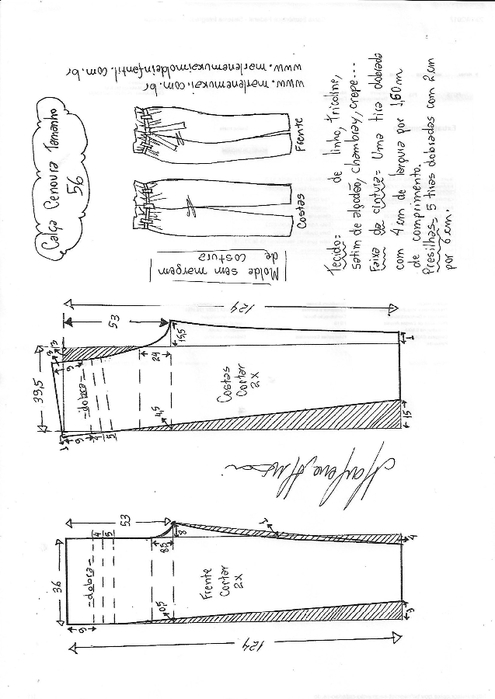 Calça Cenoura Tamanho
56
www.marlenemukai.com.br
www.marlenemukaimoldeinfantil.com.br
Frente
Costas
Molde sem margem
de costura
Tecido= de linho, tricoline,
satim de algodão, chambray, crepe...
Faixa de cintura= Uma tira dobrada
com 4 cm de largura por 1,60 m
de comprimento.
Presilhas= 5 tiras dobradas com 2 cm
por 6 cm.
124
53
39,5
3
3
15,5
24
4,5
-dobra-
Costas
Cortar
2X
6
4
5
1
1
15
53
36
-dobra-
4
5
8
8,5
0,5
6
Frente
Cortar
2X
1
4
124